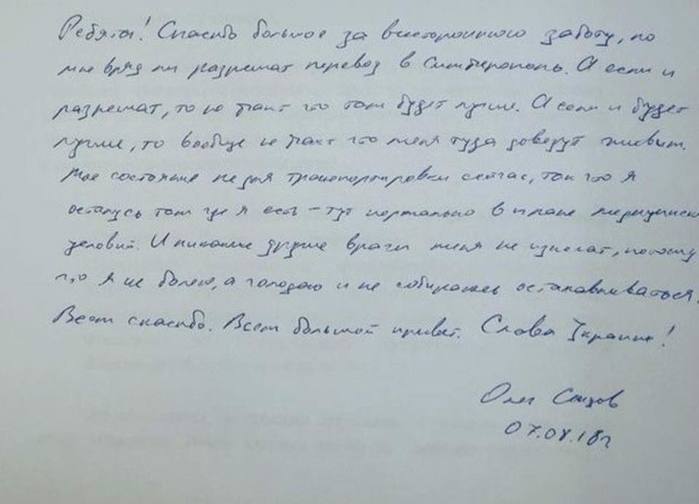 Ребята! Спасибо большое за всестороннюю заботу, но
мне вряд ли разрешат перевод в Симферополь. А если и
разрешат, то не факт что там будет лучше. А если и будет
лучше, то вообще не факт что меня туда довезут живым.
Мое состояние не для транспортировки сейчас, так что я
останусь там где я есть - тут нормально в плане медицинск
условий. И никакие другие врачи меня не излечат, потому
что я не болею, а голодаю и не собираюсь останавливаться.
Всем спасибо. Всем большой привет. Слава Украине!
Олег Сенцов
07.08.18г